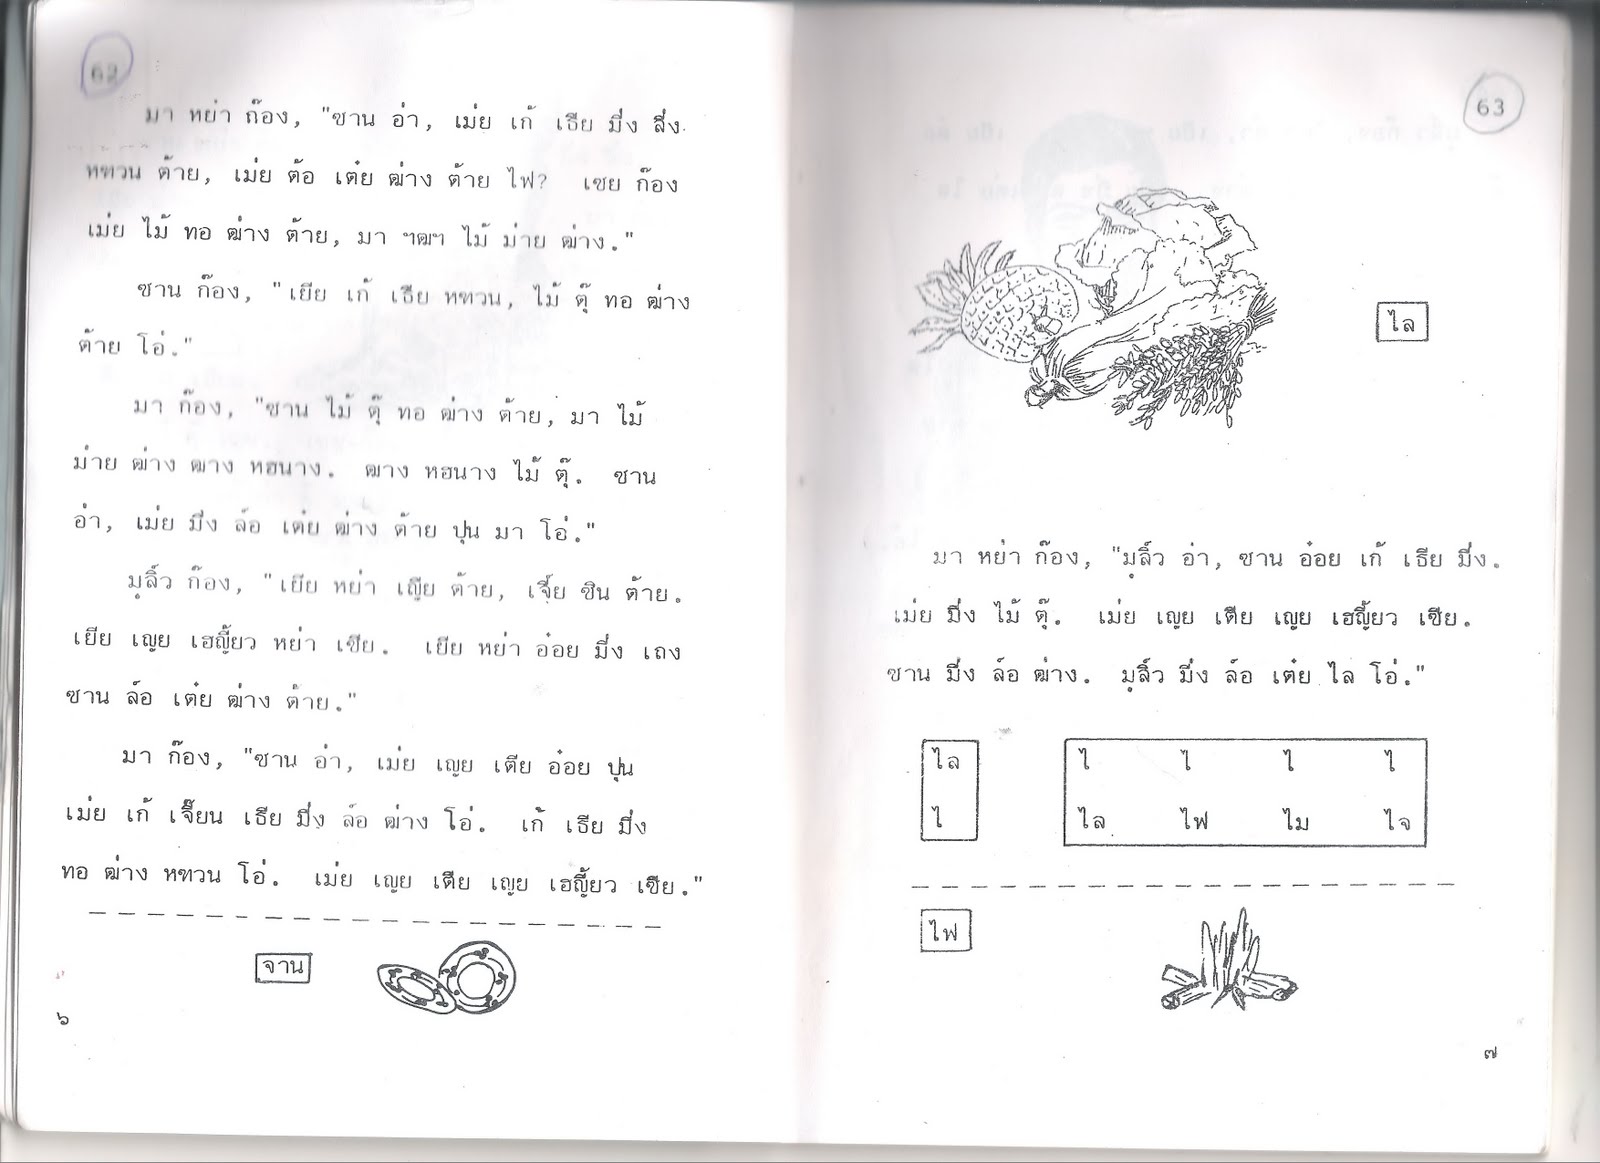 62
มา หย่า ก๊อง, "ซาน อ๋า, เม่ย เก้ เธีย มี่ง สี่ง
หฑวน ต้าย, เม่ย ต้อ เต๋ย ฒ่าง ต้าย ไฟ? เซย ก๊อง
เม่ย ไม้ ทอ ฒ่าง ต้าย, มา ฯฒฯ ไม้ ม่าย ฒ่าง."
ซาน ก๊อง, "เยีย เก้ เธีย หฑวน, ไม้ ตุ๊ ทอ ฒ่าง
ต้าย โอ่."
มา ก๊อง, "ซาน ไม้ ตุ๊ ทอ ฒ่าง ต้าย, มา ไม้
ม่าย ฒ่าง ฒาง หฮนาง. ฒาง หฮนาง ไม้ ตุ๊. ซาน
อ๋า, เม่ย มี่ง ล์อ เต๋ย ฒ่าง ต้าย ปุน มา โอ่."
มุลิ์ว ก๊อง, "เยีย หย่า เญีย ต้าย, เจี๊ย ซิน ต้าย.
เยีย เญย เฮญี้ยว หย่า เซีย. เยีย หย่า อ๋อย มี่ง เถง
ซาน ล์อ เต๋ย ฒ่าง ต้าย."
มา ก๊อง, "ซาน อ๋า, เม่ย เญย เตีย อ๋อย ปุน
เม่ย เก้ เจี๊ยน เธีย มี่ง ล์อ ฒ่าง โอ่. เก้ เธีย มี่ง
ทอ ฒ่าง หฑวน โอ่. เม่ย เญย เตีย เญย เฮญี้ยว เซีย."
จาน
๖
63
ไล
มา หย่า ก๊อง, "มุลิ์ว อ๋า, ซาน อ๋อย เก้ เธีย มี่ง.
เม่ย มี่ง ไม้ ตุ๊. เม่ย เญย เตีย เญย เฮญี้ยว เซีย.
ซาน มี่ง ล์อ ฒ่าง. มุลิ์ว มี่ง ล์อ เต๋ย ไล โอ่."
ไล
ไ
ไ ไ ไ ไ
ไล ไฟ ไม ไจ
ไฟ
๗